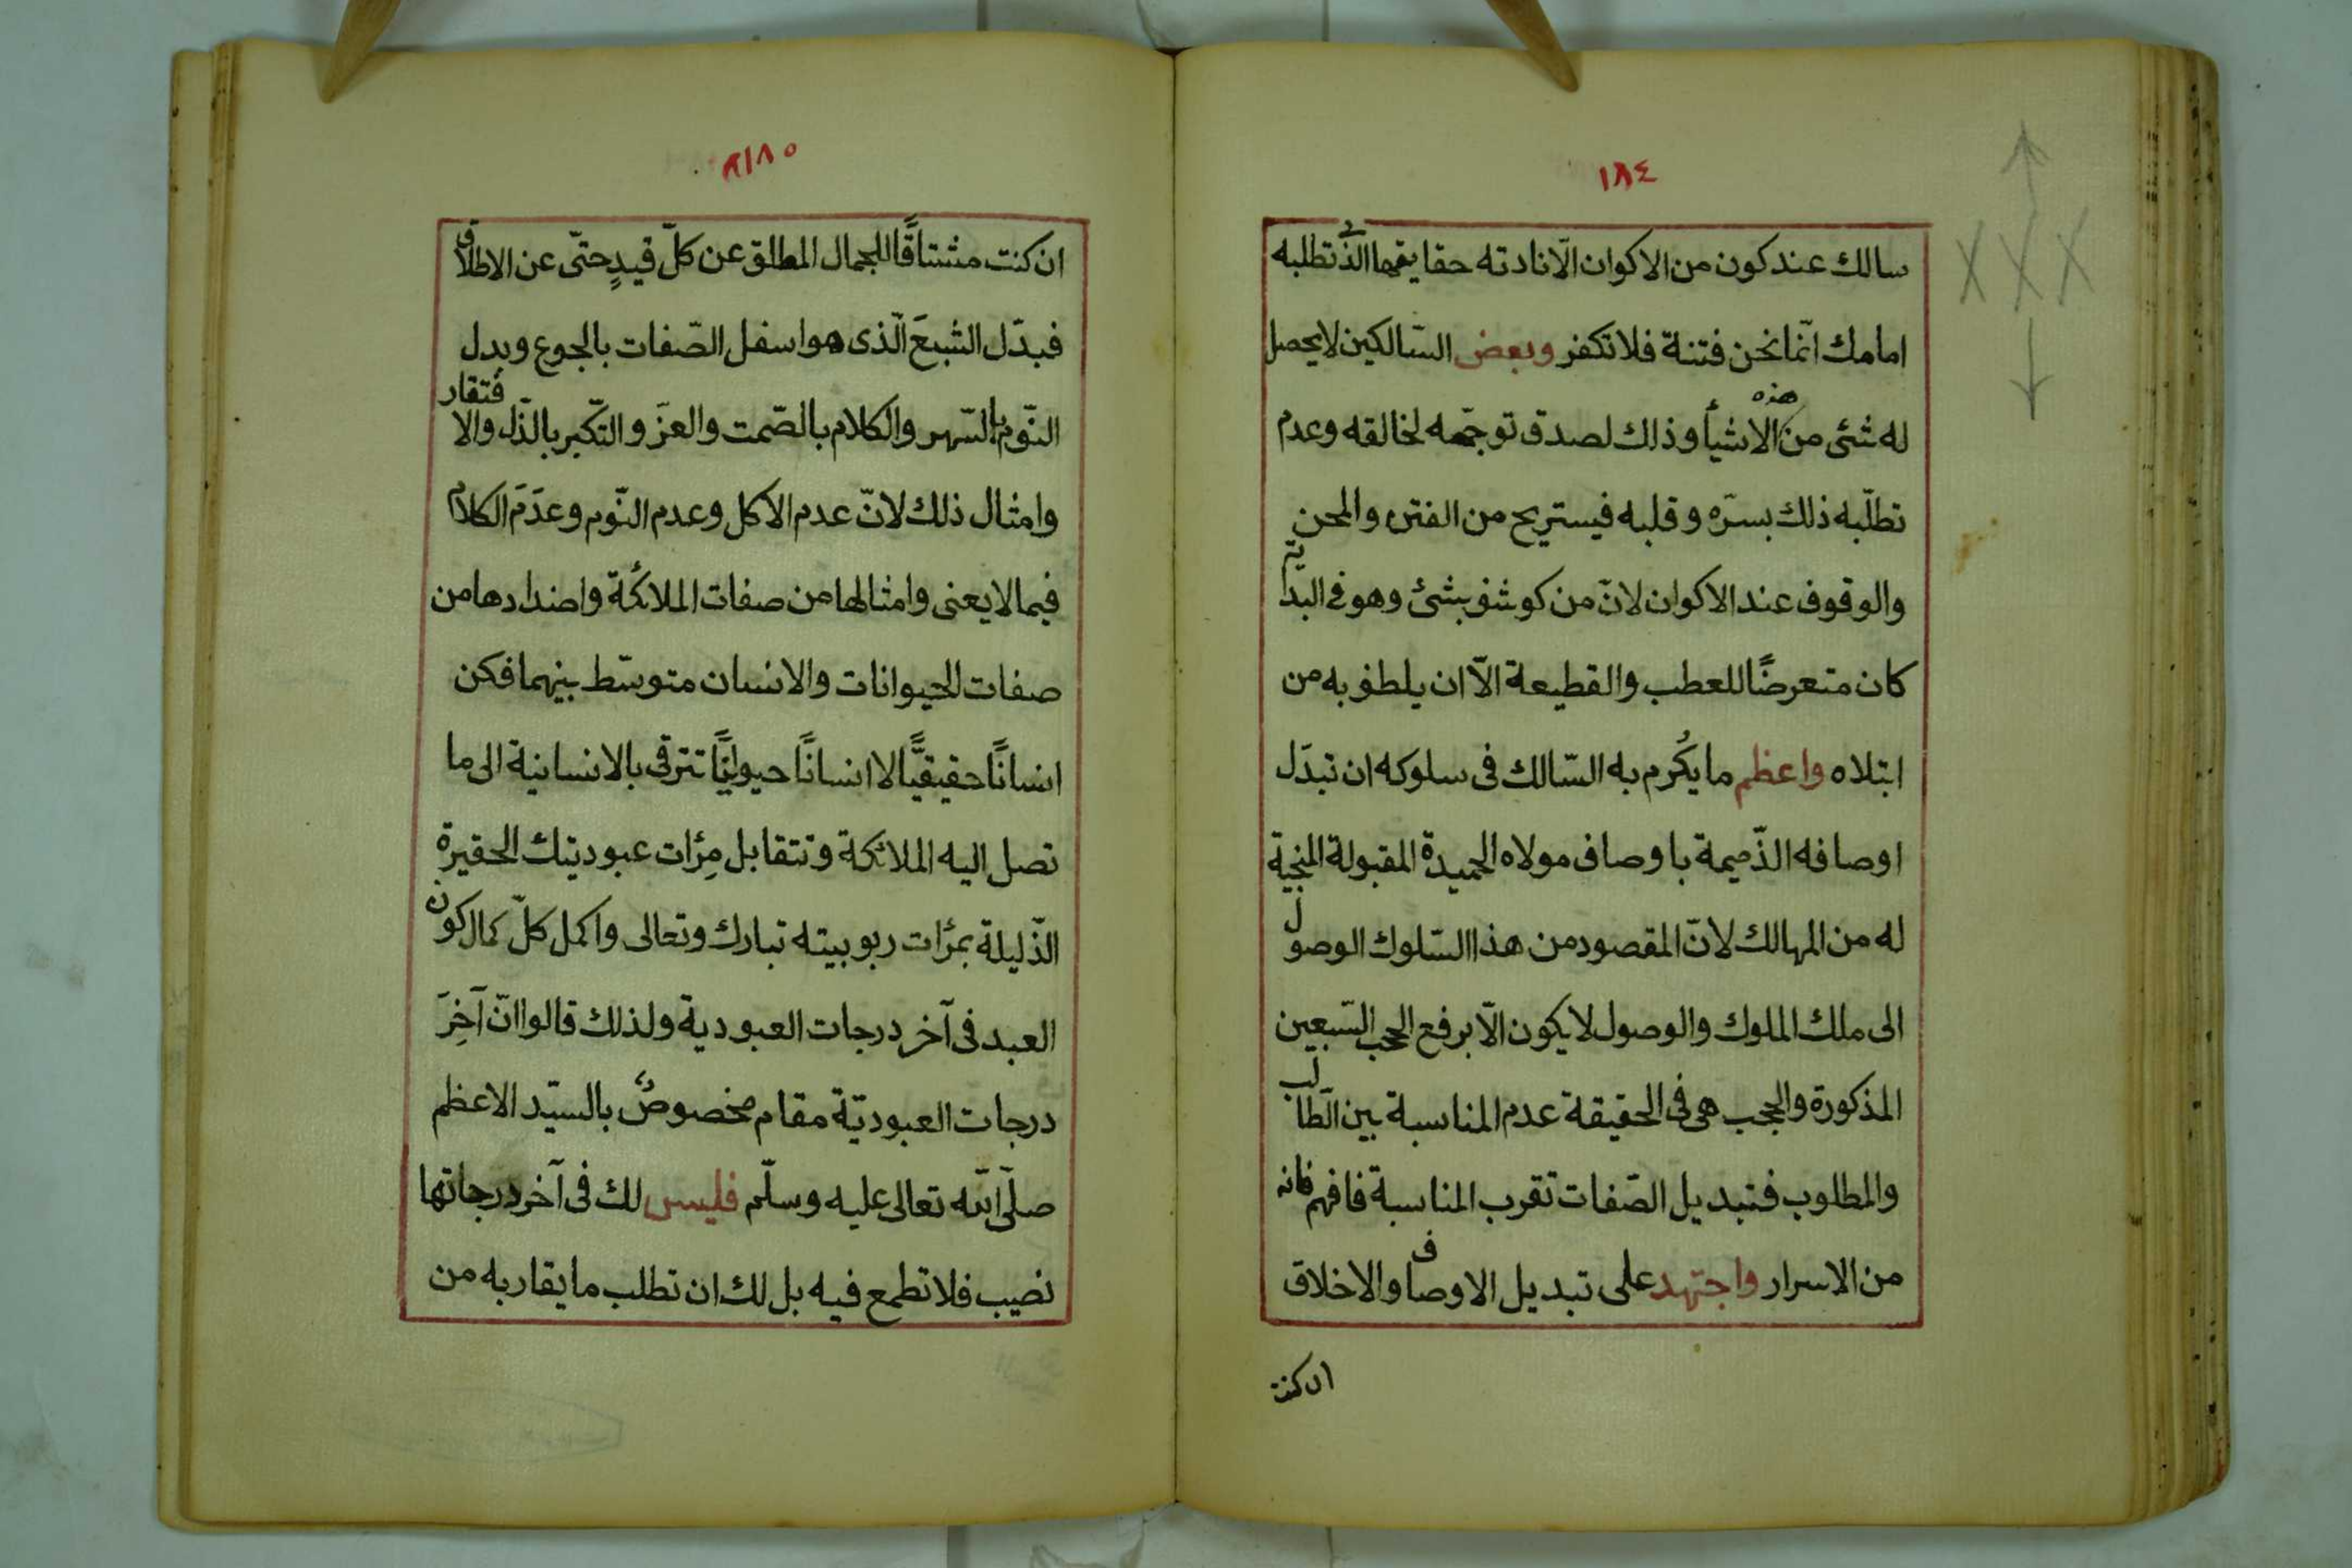 ١٨٤
سالك عند كون من الاكوان الّا نادته حقايقها الذى تطلبه
امامك انّما نحن فتنة فلا تكفر وبعض السّالكين لا يحصل
له شئ من هذه الاشيأ وذلك لصدق توجّهه لخالقه وعدم
تطلّبه ذلك بسرّه وقلبه فيستريح من الفتن والمحن
والوقوف عند الاكوان لانّ من كوشف بشئ وهو فى البداية
كان متعرضًا للعطب والقطيعة الّا ان يلطف به من
ابتلاه واعظم ما يكُرم به السّالك فى سلوكه ان تبدّل
اوصافه الذّميمة باوصاف مولاه الحميدة المقبولة المنجية
له من المهالك لانّ المقصود من هذا السّلوك الوصول
الى ملك الملوك والوصول لا يكون الّا برفع الحجب السّبعين
المذكورة والحجب هى فى الحقيقة عدم المناسبة بين الطّالب
والمطلوب فتبديل الصّفات تقرب المناسبة فافهم فانه
من الاسرار واجتهد على تبديل الاوصاف والاخلاق
ان كنت
١٨٥
ان كنت مشتاقًا للجمال المطلق عن كلّ قيدٍ حتّى عن الاطلاق
فبدّل الشبعَ الّذى هو اسفل الصّفات بالجوع وبدل
النّوم بالسّهر والكلام بالصّمت والعزّ والتكّبر بالذّل والافتقار
وامثال ذلك لانّ عدم الاكل وعدم النّوم وعدَمَ الكلام
فيما لا يعنى وامثالها من صفات الملائكة واضدادها من
صفات الحيوانات والانسان متوسّط بينهما فكن
انسانًا حقيقيًّا لا انسانًا حيوانيًّا تترقى بالانسانية الى ما
تصل اليه الملائكة وتتقابل مِرْات عبوديتك الحقيرة
الذّليلة بمرْات ربوبيته تبارك وتعالى واكمل كلّ كمال كون
العبد فى آخر درجات العبودية ولذلك قالوا انّ آخِرَ
درجات العبوديّة مقام مخصوصٌ بالسيّد الاعظم
صلّى الله تعالى عليه وسلّم فليس لك فى آخر درجاتها
نصيب فلا تطمع فيه بل لك ان تطلب ما يقاربه من